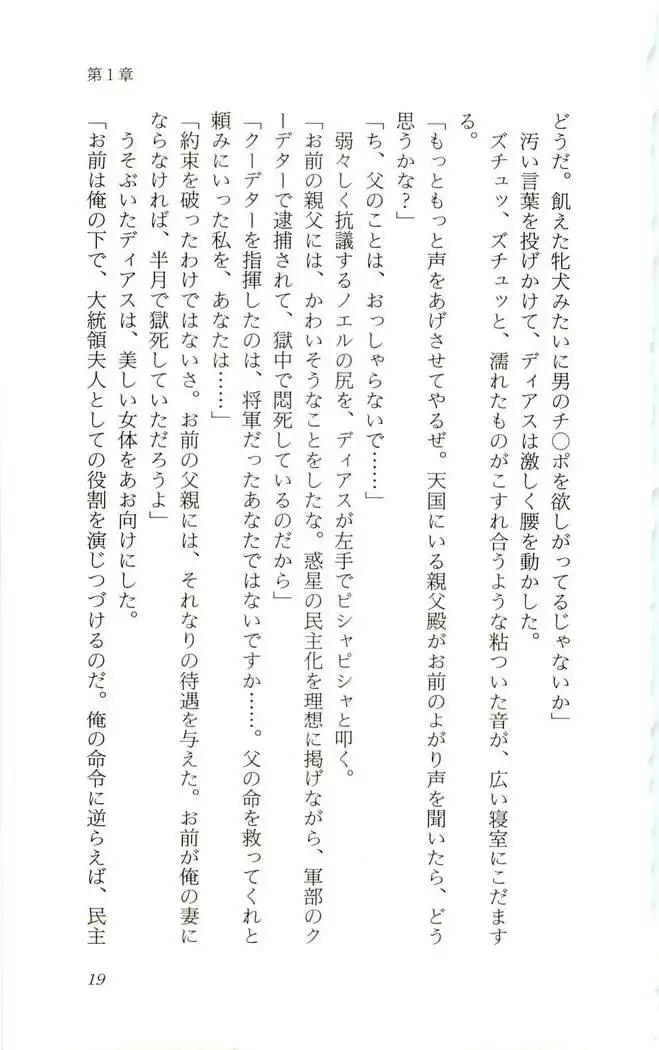 第1章
どうだ。飢えた牝犬みたいに男のチ〇ポを欲しがってるじゃないか」
汚い言葉を投げかけて、ディアスは激しく腰を動かした。
ズチュッ、ズチュッと、濡れたものがこすれ合うような粘ついた音が、広い寝室にこだます
る。
「もっともっと声をあげさせてやるぜ。天国にいる親父殿がお前のよがり声を聞いたら、どう
思うかな？」
「ち、父のことは、おっしゃらないで……」
弱々しく抗議するノエルの尻を、ディアスが左手でピシャピシャと叩く。
「お前の親父には、かわいそうなことをしたな。惑星の民主化を理想に掲げながら、軍部のク
ーデターで逮捕されて、獄中で悶死しているのだから」
「クーデターを指揮したのは、将軍だったあなたではないですか……。父の命を救ってくれと
頼みにいった私を、あなたは……」
「約束を破ったわけではないさ。お前の父親には、それなりの待遇を与えた。お前が俺の妻に
ならなければ、半月で獄死していただろうよ」
うそぶいたディアスは、美しい女体をあお向けにした。
「お前は俺の下で、大統領夫人としての役割を演じつづけるのだ。俺の命令に逆らえば、民主
19